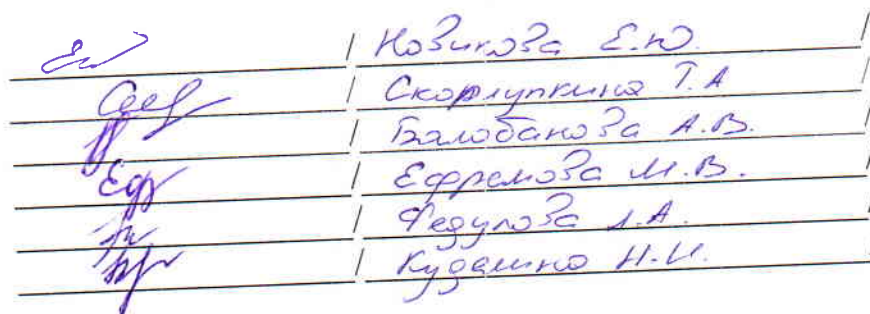 / Новикова Е.Ю. /
/ Скорлупкина Т.А /
/ Балобанова А.В. /
/ Ефремова М.В. /
/ Федулова Л.А. /
/ Кудамино Н.И. /